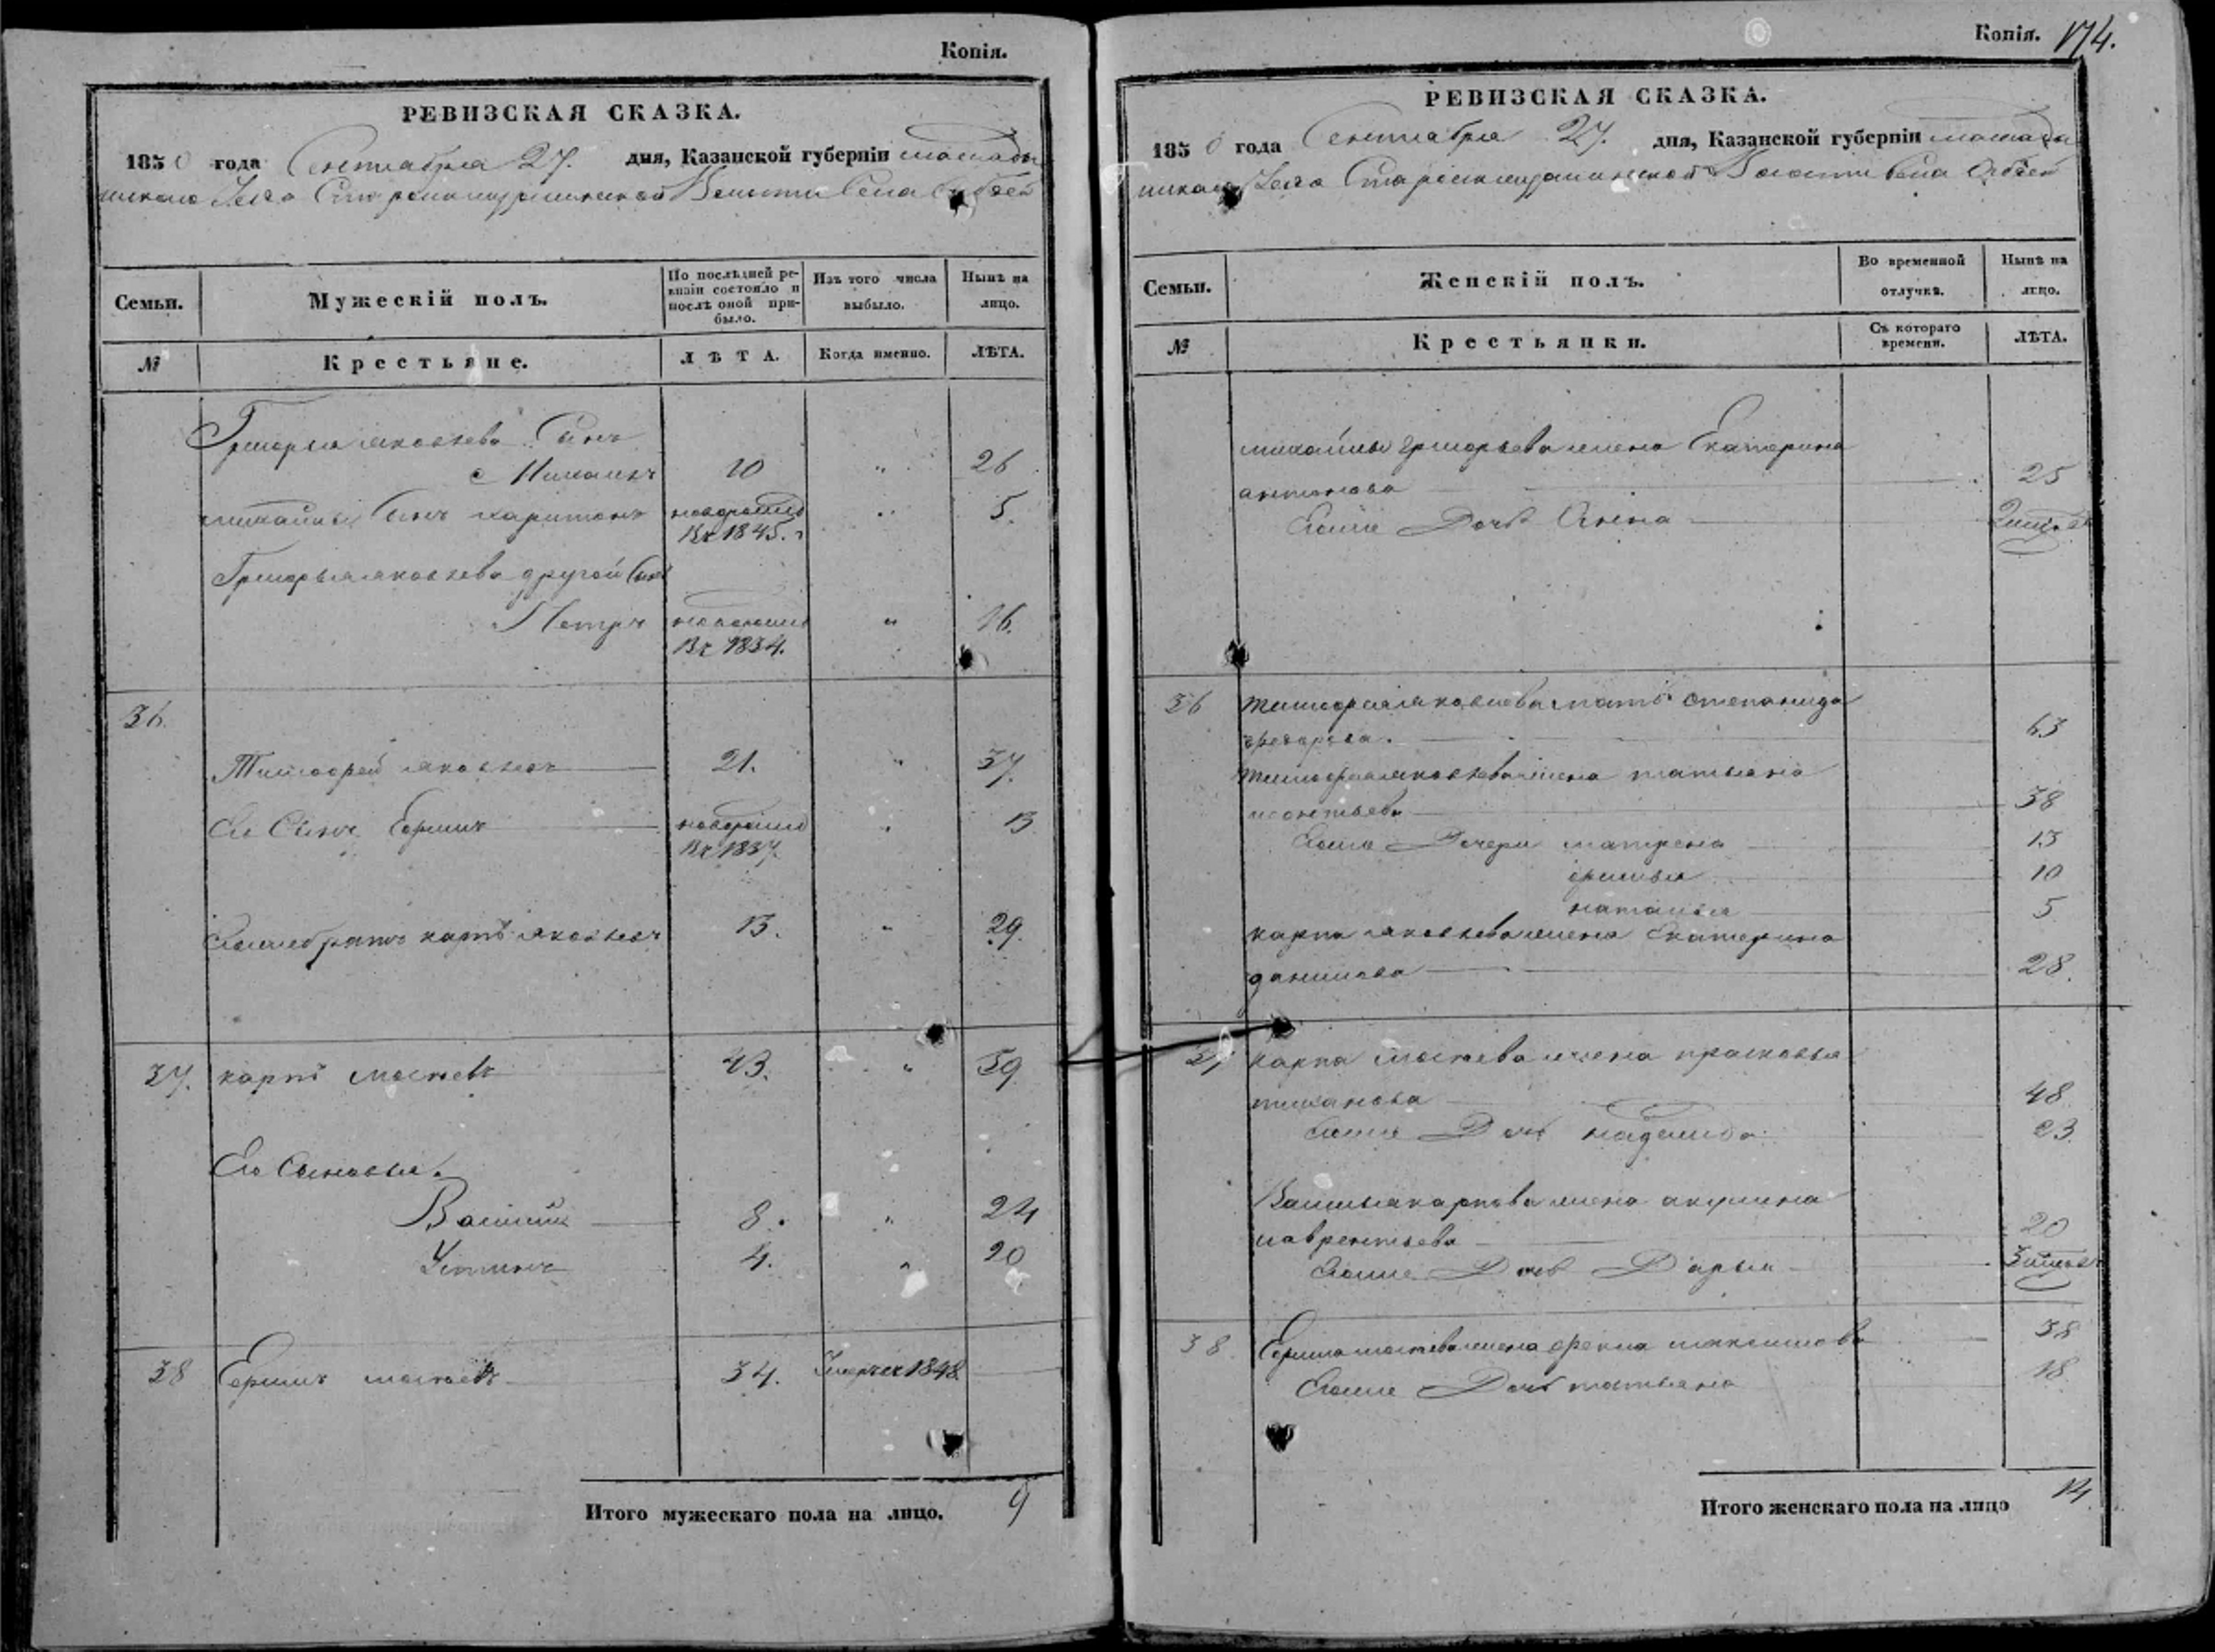 Копія.
РЕВИЗСКАЯ СКАЗКА.
1850 года Сентября 27. дня, Казанской губерніи мамады
шскаго Уезда Волости Села
Семьи.
Мужескій полъ.
По послѣдней ре-
визіи состояло и
послѣ оной при-
было.
Изъ того числа
выбыло.
Нынѣ на
лицо.
№
Крестьяне.
ЛѢТА.
Когда именно.
ЛѢТА.
Григорья яковлева Сынъ
Михаилъ 10 " 26
михайлы Сынъ харитонъ новорожд " 5.
въ 1845. г
Григорья яковлева другой Сынъ
Петръ " 16.
въ 1834.
36.
Тимофей яковлевъ 21. " 37.
Его Сынъ Ефимъ новорожд " 13
въ 1837.
братъ карпъ яковлевъ 13. " 29.
37. карпъ 43. " 59
Его Сыновья.
Василий 8. " 24
Устинъ 4. " 20
38 Ефимъ 34. Умеръ въ 1848.
Итого мужескаго пола на лицо. 9
Копія. 174.
РЕВИЗСКАЯ СКАЗКА.
1850 года Сентября 27. дня, Казанской губерніи мамады
шскаго Уезда Волости Села
Семьи.
Женскій полъ.
Во временной
отлучкѣ.
Нынѣ на
лицо.
№
Крестьянки.
Съ котораго
времени.
ЛѢТА.
михайлы григорьева жена Екатерина
антонова 25
Дочь Анна
36 тимофея яковлева мать степанида
федорова. 63
тимофея яковлева жена татьяна
леонтьева 38
Дочери матрена 13
10
наталья 5
карпа яковлева жена Екатерина
данилова 28.
37 карпа жена прасковья
48
Дочь надежда 23.
Василья карпова жена акулина
лаврентьева 20
Дочь Дарья
38 Ефима жена фекла максимова 38
Дочь татьяна 18
Итого женскаго пола на лицо 14